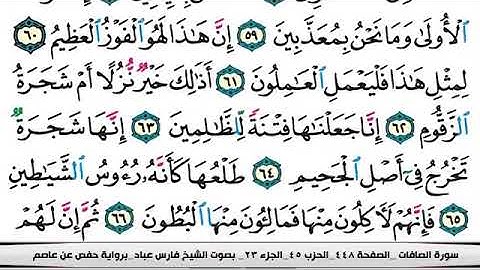 ٱلْأُولَىٰ وَمَا نَحْنُ بِمُعَذَّبِينَ ٥٩ إِنَّ هَٰذَا لَهُوَ ٱلْفَوْزُ ٱلْعَظِيمُ ٦٠
لِمِثْلِ هَٰذَا فَلْيَعْمَلِ ٱلْعَٰمِلُونَ ٦١ أَذَٰلِكَ خَيْرٌ نُّزُلًا أَمْ شَجَرَةُ
ٱلزَّقُّومِ ٦٢ إِنَّا جَعَلْنَٰهَا فِتْنَةً لِّلظَّٰلِمِينَ ٦٣ إِنَّهَا شَجَرَةٌ
تَخْرُجُ فِىٓ أَصْلِ ٱلْجَحِيمِ ٦٤ طَلْعُهَا كَأَنَّهُۥ رُءُوسُ ٱلشَّيَٰطِينِ
٦٥ فَإِنَّهُمْ لَءَاكِلُونَ مِنْهَا فَمَالِـُٔونَ مِنْهَا ٱلْبُطُونَ ٦٦ ثُمَّ إِنَّ لَهُمْ
سورة الصافات _الصفحة ٤٤٨_ الحزب ٤٥_ الجزء ٢٣_ بصوت الشيخ فارس عباد_ برواية حفص عن عاصم